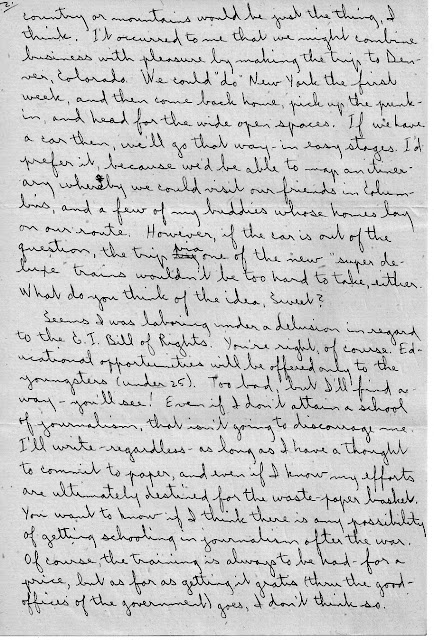 2/
country or mountains would be just the thing, I
think. It occurred to me that we might combine
business with pleasure by making the trip to Den-
ver, Colorado. We could "do" New York the first
week, and then come back home, pick up the punk-
in, and head for the wide open spaces. If we have
a car then, we'll go that way - in easy stages. I'd
prefer it, because we'd be able to map an itiner-
ary whereby we could visit our friends in Colum-
bus, and a few of my buddies whose homes lay
on our route. However, if the car is out of the
question, the trip via one of the new "super de-
luxe" trains wouldn't be too hard to take, either.
What do you think of the idea, Sweet?
Seems I was laboring under a delusion in regard
to the G.I. Bill of Rights. You're right, of course. Ed-
ucational opportunities will be offered only to the
youngsters (under 25). Too bad, but I'll find a
way - you'll see! Even if I don't attain a school
of journalism, that isn't going to discourage me.
I'll write - regardless - as long as I have a thought
to commit to paper, and even if I know my efforts
are ultimately destined for the waste-paper basket.
You want to know if I think there is any possibility
of getting schooling in journalism after the war.
Of course, the training is always to be had - for a
price, but as far as getting it gratis (thru the good-
offices of the government) goes, I don't think so.